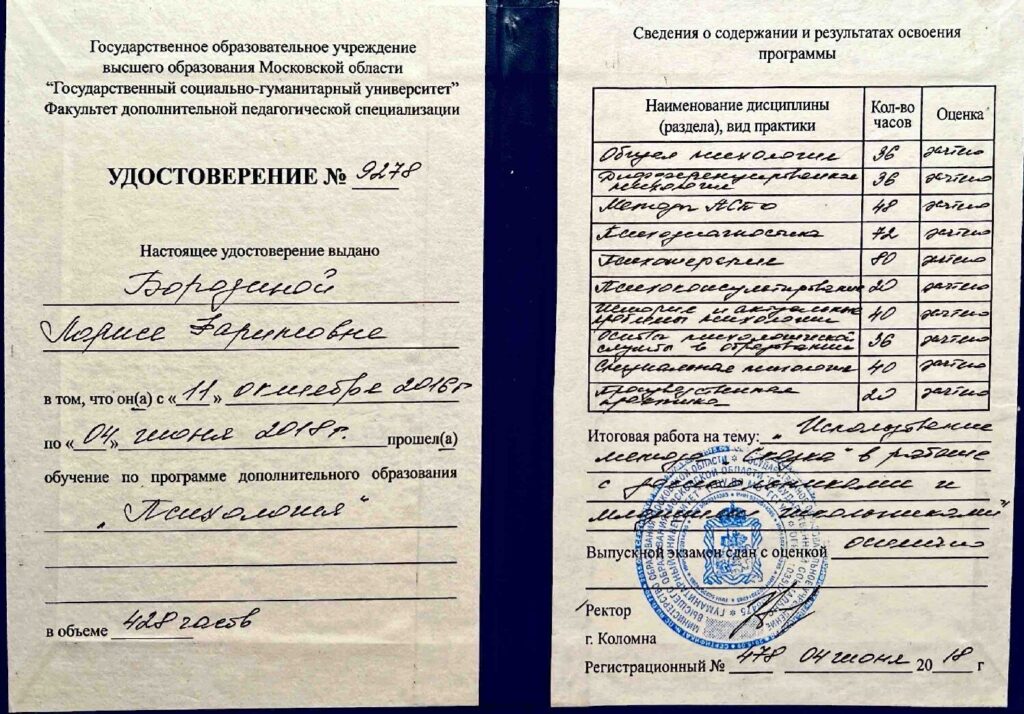 Государственное образовательное учреждение
высшего образования Московской области
“Государственный социально-гуманитарный университет”
Факультет дополнительной педагогической специализации
УДОСТОВЕРЕНИЕ № 9278
Настоящее удостоверение выдано
Бородиной
Ларисе Фаритовне
в том, что он(а) с «11» октября 2016г
по «04» июня 2018г. прошел(а)
обучение по программе дополнительного образования
„Психология“
в объеме 428 часов
Сведения о содержании и результатах освоения
программы
Наименование дисциплины
(раздела), вид практики
Кол-во
часов
Оценка
Общая психология 36 зачтено
Дифференцированная
психология 36 зачтено
Методы АСПО 48 зачтено
Психодиагностика 72 зачтено
Психотерапия 80 зачтено
Психоконсультирование 20 зачтено
История и актуальные
проблемы психологии 40 зачтено
Основы психологической
службы в образовании 36 зачтено
Специальная психология 40 зачтено
Производственная
практика 20 зачтено
Итоговая работа на тему: „Использование
метода "Сказка" в работе
с дошкольниками и
младшими школьниками“
Выпускной экзамен сдан с оценкой отлично
Ректор
г. Коломна
Регистрационный № 478 04 июня 2018 г